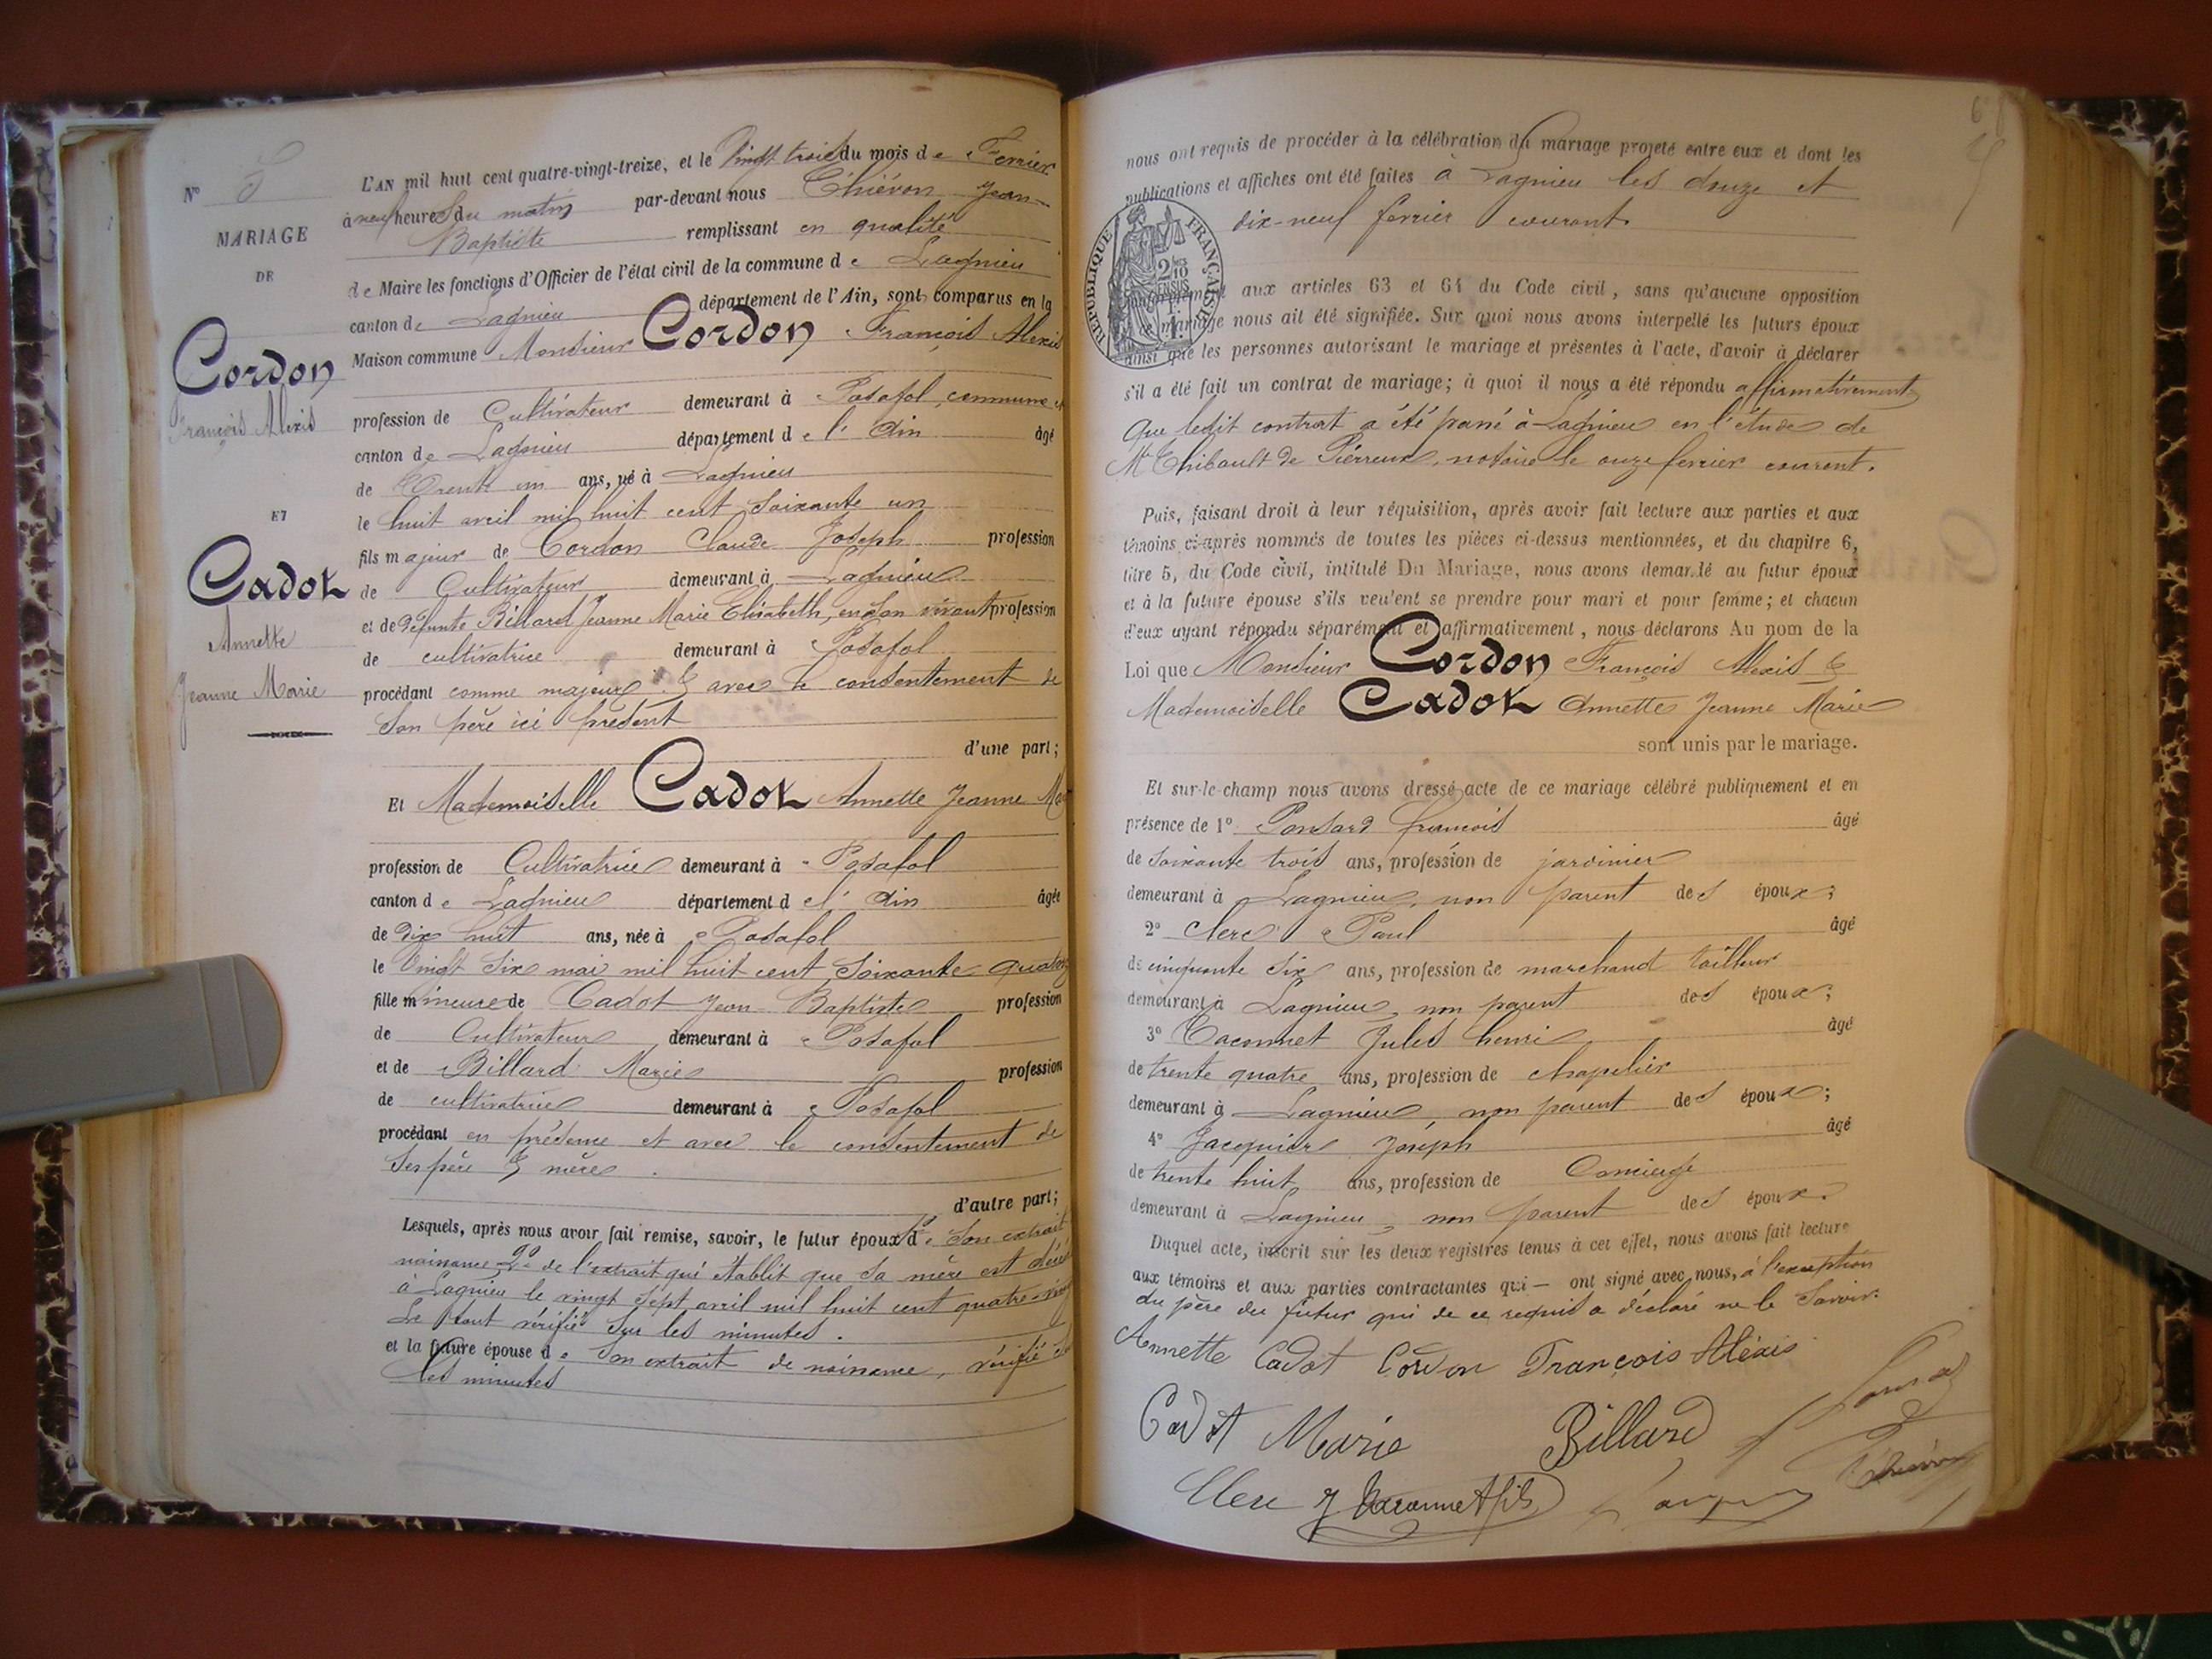 N° 5
MARIAGE
DE
Cordon
François Alexis
ET
Cadot
Annette
Jeanne Marie
L'AN mil huit cent quatre-vingt-treize, et le Vingt trois du mois de Ferrier
à neuf heures du matin par-devant nous Chiévron Jean-
Baptiste remplissant en qualité
de Maire les fonctions d'Officier de l'état civil de la commune de Lagnieu
canton de Lagnieu département de l'Ain, sont comparus en la
Maison commune Monsieur Cordon François Alexis
profession de Cultivateur demeurant à Posafol, commune et
canton de Lagnieu département de l'Ain âgé
de Trente un ans, né à Lagnieu
le huit avril mil huit cent soixante un
fils majeur de Cordon Claude Joseph profession
de Cultivateur demeurant à Lagnieu
et de Défunte Billard Jeanne Marie Elisabeth, en son vivant profession
de cultivatrice demeurant à Posafol
procédant comme majeur & avec le consentement de
Son père ici présent
d'une part;
Et Mademoiselle Cadot Annette Jeanne
profession de Cultivatrice demeurant à Posafol
canton de Lagnieu département de l'Ain âgée
de Dix huit ans, née à Posafol
le Vingt Six mai mil huit cent Soixante-quatorz
fille mineure de Cadot Jean Baptiste profession
de Cultivateur demeurant à Posafol
et de Billard Marie profession
de cultivatrice demeurant à Posafol
procédant en présence et avec le consentement de
Ses père & mère.
d'autre part;
Lesquels, après nous avoir fait remise, savoir, le futur époux d 1° Son extrait
naissance 2° de l'extrait qui établit que sa mère est
à Lagnieu le vingt Sept avril mil huit cent quatre-
Le tout vérifié Sur les minutes.
et la future épouse de Son extrait de naissance, vérifié
les minutes
68
nous ont requis de procéder à la célébration du mariage projeté entre eux et dont les
publications et affiches ont été faites à Lagnieu les douze et
dix-neuf ferrier courant
RÉPUBLIQUE FRANÇAISE
2/10 EN SUS
conformément aux articles 63 et 64 du Code civil, sans qu'aucune opposition
ce mariage nous ait été signifiée. Sur quoi nous avons interpellé les futurs époux
ainsi que les personnes autorisant le mariage et présentes à l'acte, d'avoir à déclarer
s'il a été fait un contrat de mariage; à quoi il nous a été répondu affirmativement
Que ledit contrat a été passé à Lagnieu en l'étude de
Me Thibault de Pierreux, notaire le onze ferrier courant.
Puis, faisant droit à leur réquisition, après avoir fait lecture aux parties et aux
témoins ci-après nommés de toutes les pièces ci-dessus mentionnées, et du chapitre 6,
titre 5, du Code civil, intitulé Du Mariage, nous avons demandé au futur époux
et à la future épouse s'ils veulent se prendre pour mari et pour femme; et chacun
d'eux ayant répondu séparément et affirmativement, nous déclarons Au nom de la
Loi que Monsieur Cordon François Alexis &
Mademoiselle Cadot Annette Jeanne Marie
sont unis par le mariage.
Et sur-le-champ nous avons dressé acte de ce mariage célébré publiquement et en
présence de 1° Ponsard françois âgé
de Soixante trois ans, profession de jardinier
demeurant à Lagnieu, non parent des époux;
2° Clerc Paul âgé
de cinquante Six ans, profession de marchand tailleur
demeurant à Lagnieu, non parent des époux;
3° Taconnet Jules henri âgé
de trente quatre ans, profession de chapelier
demeurant à Lagnieu, non parent des époux;
4° Jacquier Joseph âgé
de trente huit ans, profession de Concierge
demeurant à Lagnieu, non parent des époux.
Duquel acte, inscrit sur les deux registres tenus à cet effet, nous avons fait lecture
aux témoins et aux parties contractantes qui — ont signé avec nous, à l'exception
du père du futur qui de ce requis a déclaré ne le Savoir.
Annette Cadot Cordon François Aléxis
Cadot Marie Billard
Clerc J Taconnet fils